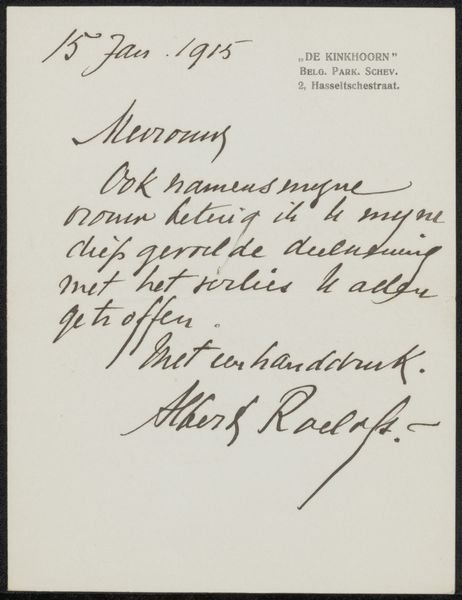 15 Jan. 1915
„DE KINKHOORN"
BELG. PARK. SCHEV.
2, Hasseltschestraat.
Mevrouw
Ook namens myne
vrouw betuig ik U myne
diep gevoelde deelneming
met het verlies U allen
getroffen.
Met een handdruk.
Albert Roelofs.–